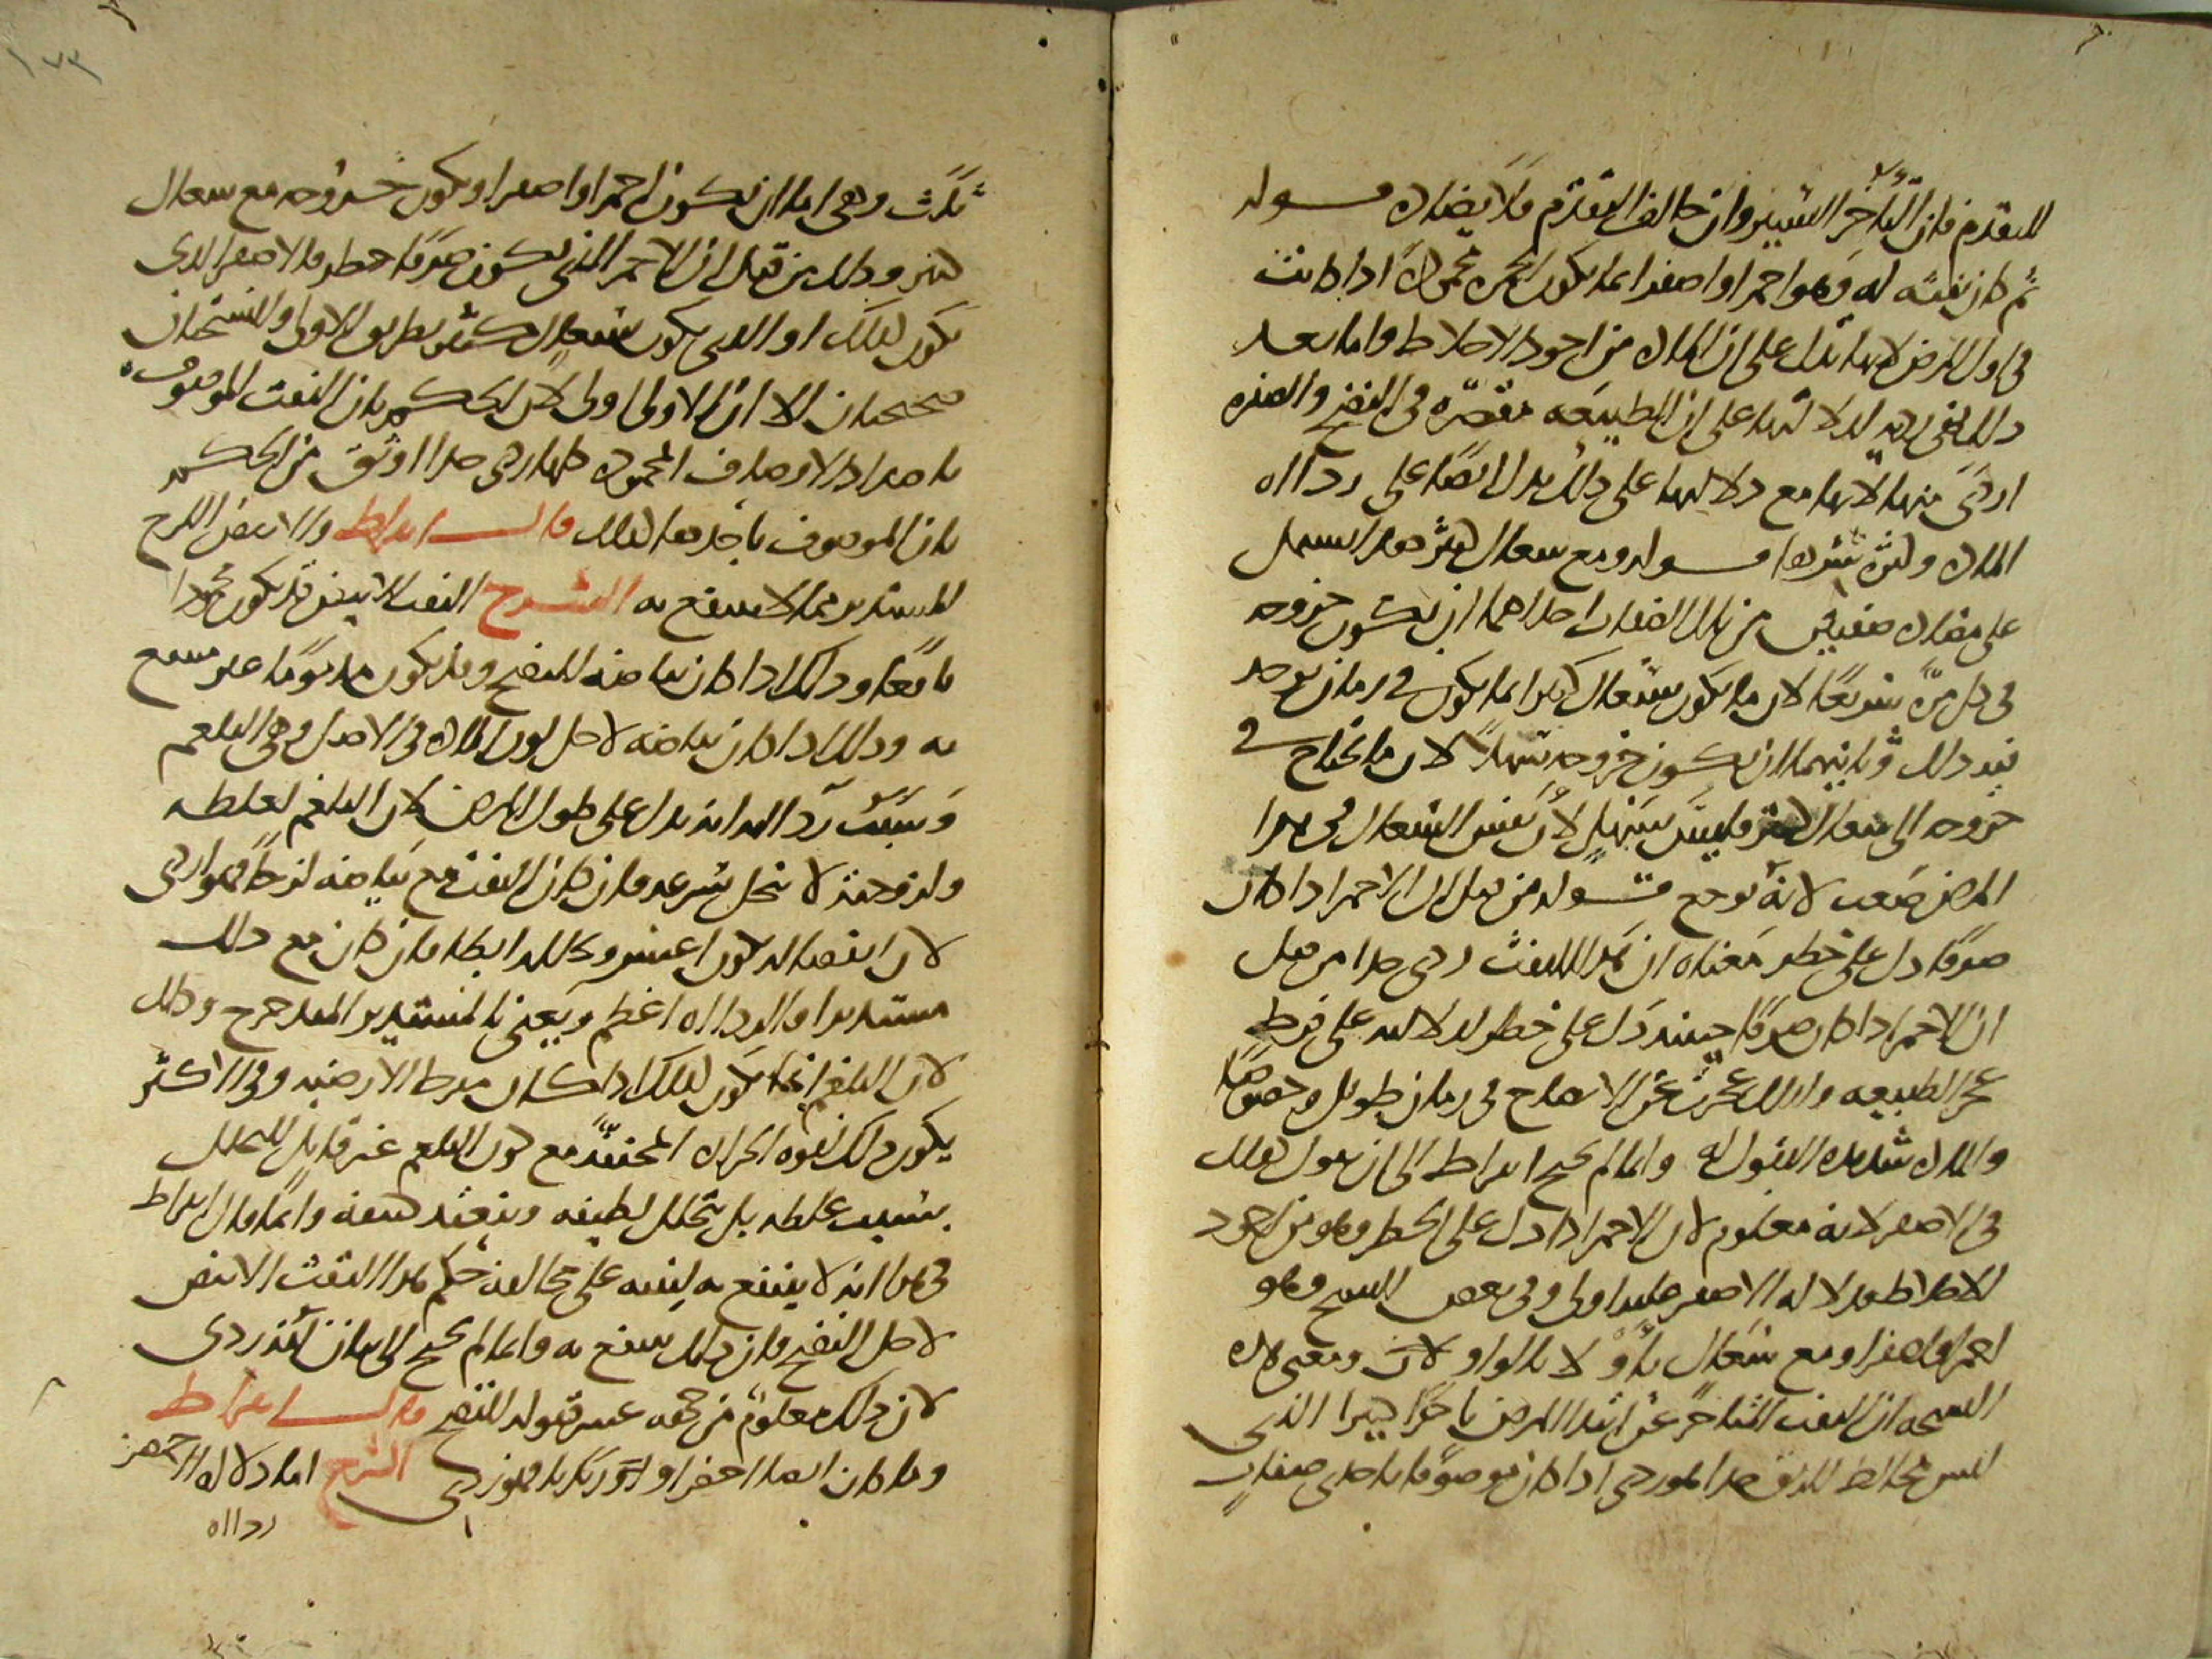 للتقدم فان التأخر اليسير وان خالف التقدم فلا يضاده قوله
ثم كان نفثه له وهو احمر او اصفر انما يكون الحمرة محمودة اذا كانت
في اول المرض لانها تدل على ان المادة من اجود الاخلاط واما بعد
ذلك فهي رديه لدلالتها على ان الطبيعه مقصره في النضج والصفره
اردى منها لانها مع دلالتها على ذلك تدل ايضا على رداءة
المادة وكثرة قوله ومع سعال كثير هذا يشتمل
على مضادة صفتين من تلك الصفات احداهما ان يكون خروجه
في كل مرة سريعا لان ما يكون بسعال كثير انما يكون في زمان يوجد
فيه ذلك وثانيهما ان يكون خروجه سهلا لان ما يحتاج في
خروجه الى سعال كثير فليس بسهل لأن نفس السعال في هذا
المرض صعب لانه يوجع قوله من قبل ان الاحمر اذا كان
صرفا دل على خطر معناه ان هذا النفث ردي جدا من قبل
ان الاحمر اذا كان صرفا حينئذ دل على خطر لدلالته على فرط
عجز الطبيعه وانها عجزت عن الانضاج في زمان طويل وخصوصا
والمادة شديدة القبول له وانما لم يحتج ابقراط الى ان يقول ذلك
في الاصفر لانه معلوم لان الاحمر اذا دل على الخطر وهو من اجود
الاخلاط فدلالة الاصفر عليه اولى وفي بعض النسخ وهو
احمر او اصفر او مع سعال بأو لا بالواو لان ومعنى هذه
النسخه ان النفث المتأخر عن ابتداء المرض تأخرا كثيرا الذي
ليس مخالط للريق جدا فهو ردي اذا كان موصوفا باحدى صفات
ثلاث وهي اما ان يكون احمر او اصفر او يكون خروجه مع سعال
كثير وذلك من قبل ان الاحمر الذي يكون صرفا خطر فالاصفر الذي
يكون كذلك او الذي يكون بسعال كثير بطريق الاولى والنسختان
صحيحتان الا ان الاولى اولى لان الحكم بان النفث الموصوف
باضداد الاوصاف المحمودة كلها ردي جدا اوثق من الحكم
بان الموصوف باحدها كذلك قال ابقراط والابيض اللزج
المستدير مما لا ينتفع به الشرح النفث الابيض قد يكون محمودا
نافعا وذلك اذا كان بياضه للنضج وقد يكون مذموما غير منتفع
به وذلك اذا كان بياضه لاجل لون المادة في الاصل وهي البلغم
وسبب رداءة هذا انه يدل على طول المرض لان البلغم لغلظه
ولزوجته لا ينحل بسرعه فان كان النفث مع بياضه لزجا فهو اردى
لان انفصاله يكون اعسر وتحلله ابطا فان كان مع ذلك
مستديرا فالرداءة اعظم ويعني بالمستدير المتدحرج وذلك
لان البلغم انما يكون كذلك اذا كان مفرط الارضيه وفي الاكثر
يكون ذلك لقوة الحرارة المجففه مع كون البلغم غير قابل للتحلل
بسبب غلظه بل يتحلل لطيفه وينعقد كثيفه وانما قال ابقراط
في هذا انه لا ينتفع به لينبه على مخالفة حكم هذا النفث الابيض
لاجل النضج فان ذلك ينتفع به وانما لم يحتج الى بيان انه ردي
لان ذلك معلوم من جهه عسر قبوله للنضج قال ابقراط
وما كان ايضا اخضر او زبديا فهو ردي الشرح اما دلالة الاخضر
رداءة